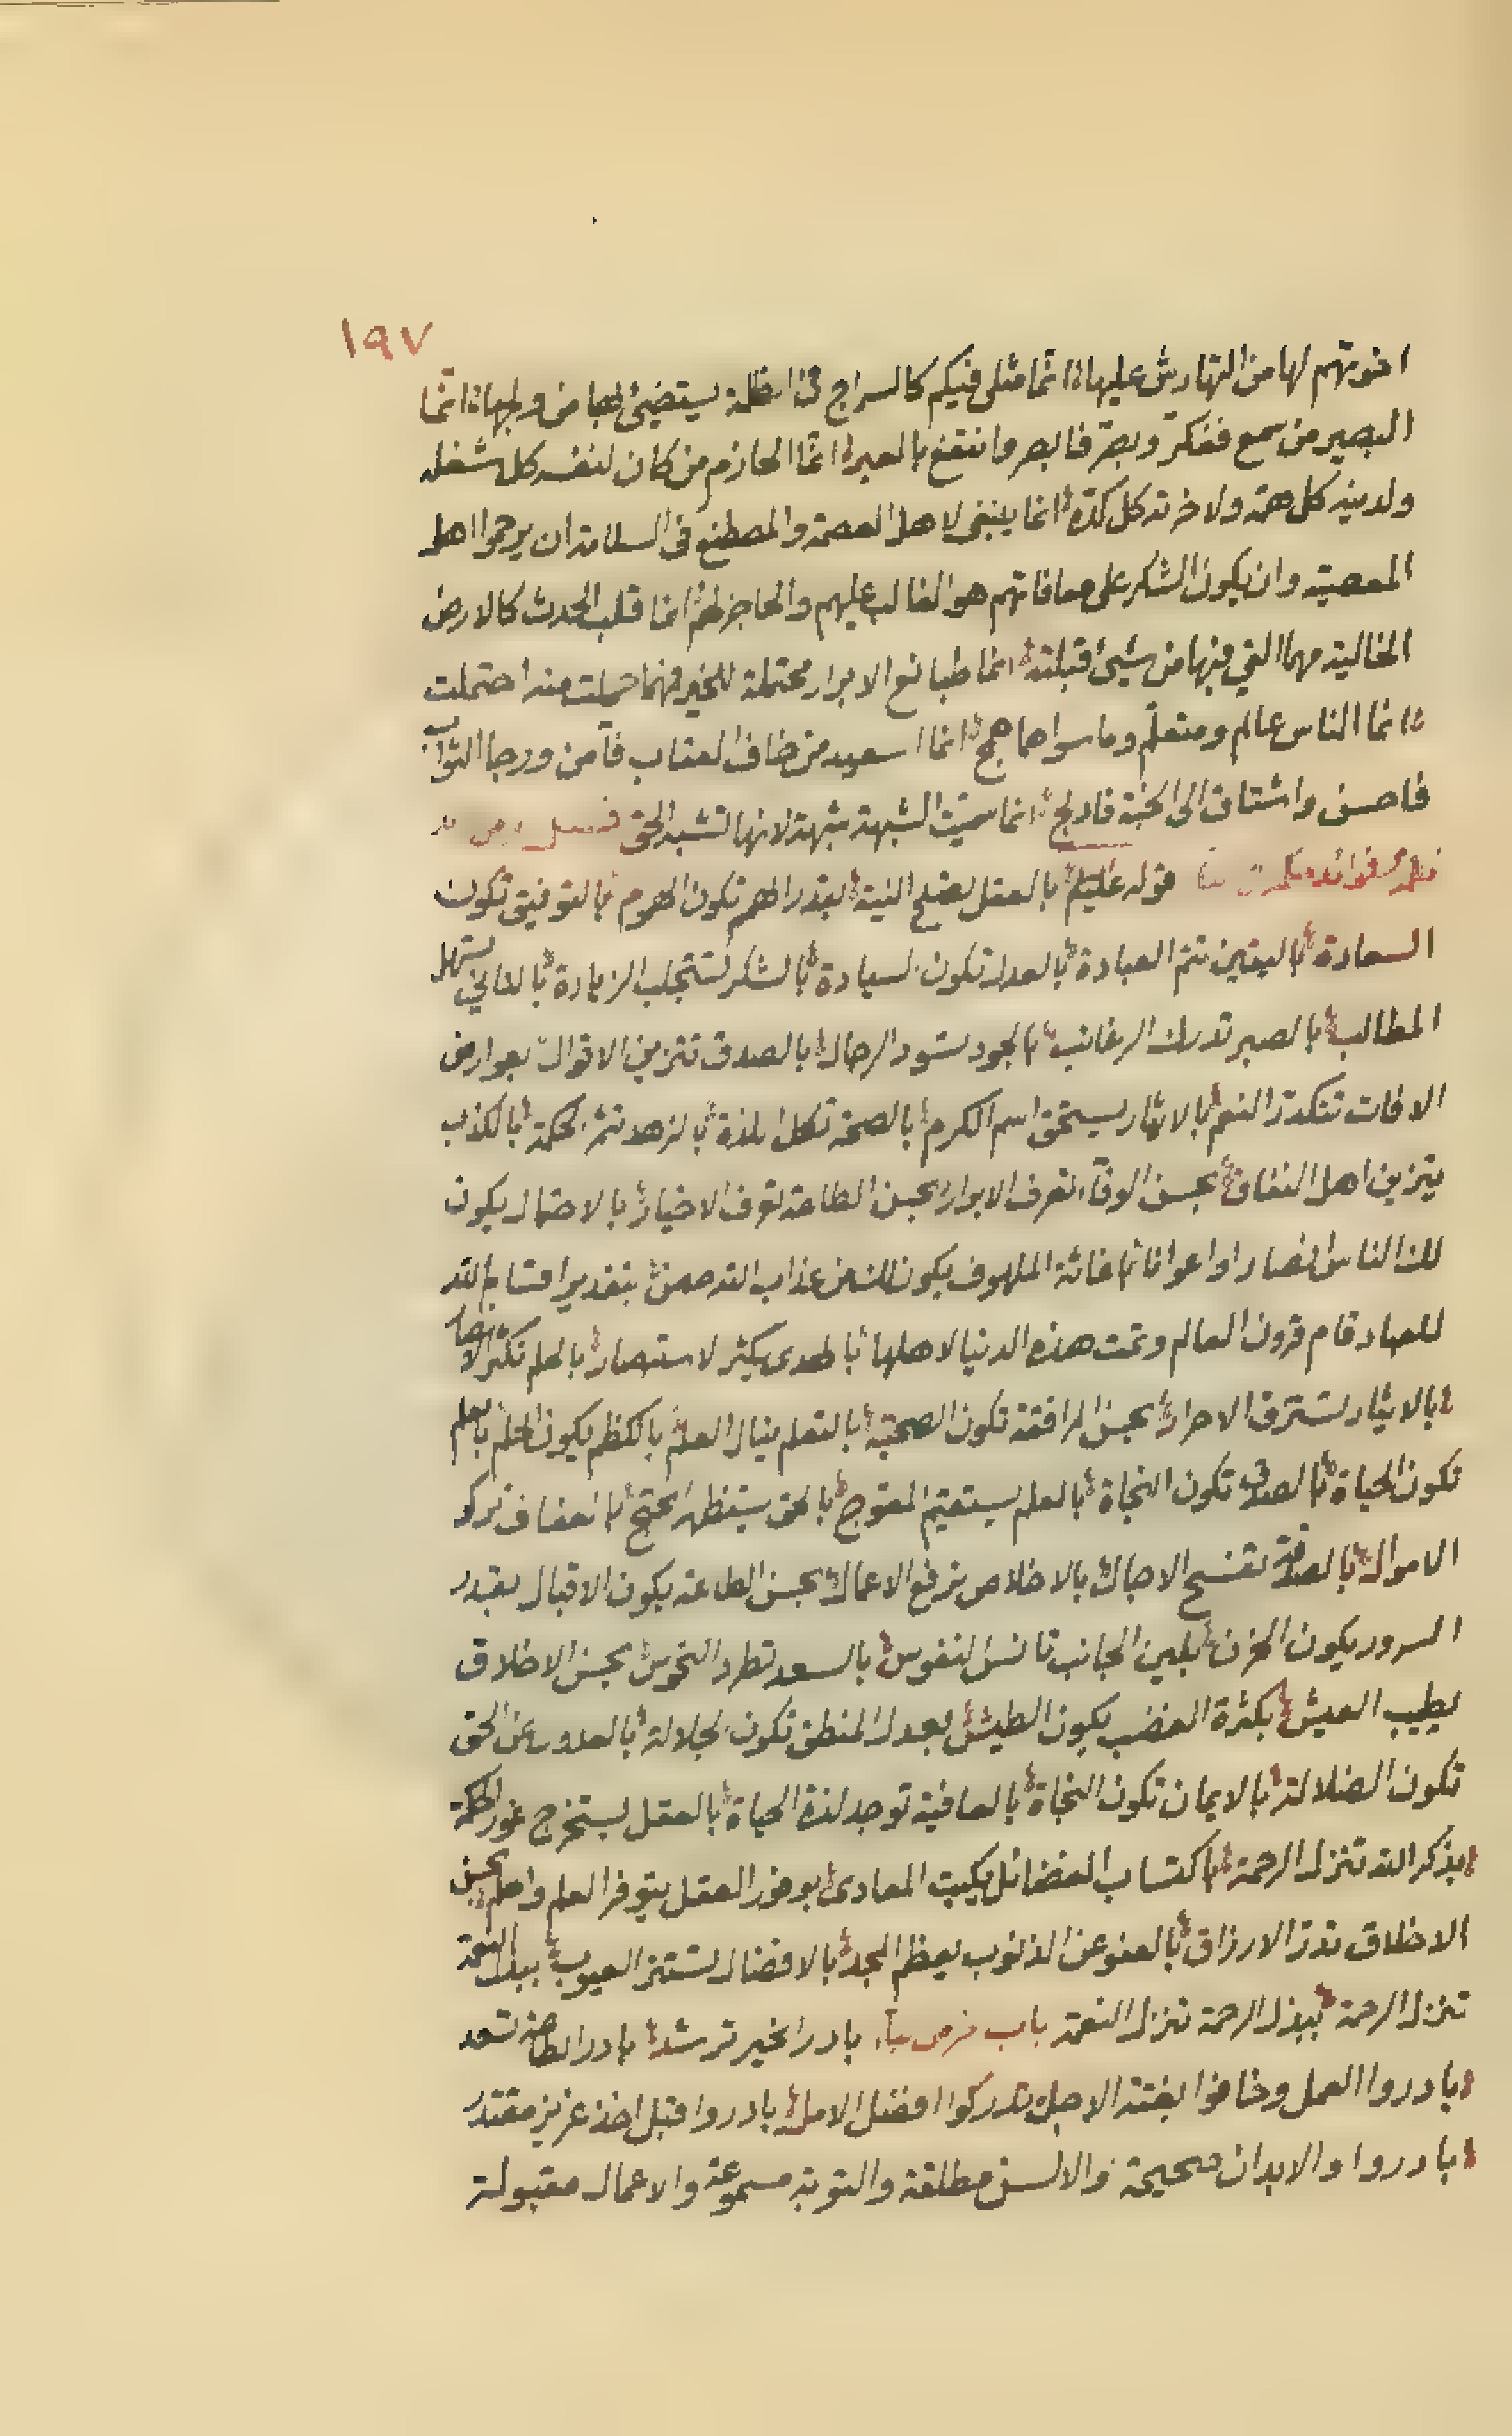 ١٩٧
اخوتهم لها من التهارش عليها انما مثلى فيكم كالسراج فى الظلمة يستضيئ بها من ولجها انما
البصير من سمع ففكر وبصر فابصر وانتفع بالعبر انما الحازم من كان لنفسه كل شغله
ولدينه كل همه ولاخرته كل كده انما ينبغى لاهل العصمة والمصطنع فى السلامة ان يرحموا اهل
المعصية وان يكون الشكر على معافاتهم هو الغالب عليهم والحاجز لهم انما قلب الحدث كالارض
الخالية مهما القي فيها من شيئ قبلته انما طبائع الابرار محتملة للخير فهما حملت منه احتملت
انما الناس عالم ومتعلم وما سواهما همج انما السعيد من خاف العقاب فآمن ورجا الثواب
فاحسن واشتاق الى الجنة فادلج انما سميت الشبهة شبهة لانها تشبه الحق
قوله عليلم بالعقل يصلح النية بقدر الهم تكون الهموم بالتوفيق تكون
السعادة باليقين تتم العبادة بالعدل تكون السيادة بالشكر تستجلب الزيادة بالتاني يسهل
المطالب بالصبر تدرك الرغائب بالجود تسود الرجال بالصدق تتزين الاقوال بعوارض
الافات تتكدر النعم بالايثار يستحق اسم الكرم بالصحة تكمل اللذة بالزهد تثمر الحكمة بالكذب
يتزين اهل النفاق بحسن الوفآء تعرف الابرار بحسن الطاعة تعرف الاخيار بالاحتمال يكون
لك الناس انصارا واعوانا باغاثة الملهوف يكون لك من عذاب الله حصن بتقدير اقسام الله
للعباد قام قرون العالم وتمت هذه الدنيا لاهلها بالهدى يكثر الاستبصار بالحلم تكثر الانصار
بالايثار تسترق الاحرار بحسن المرافقة تكون الصحبة بالتعلم ينال العلم بالكظم يكون الحلم بالعلم
تكون الحياة بالصدق تكون النجاة بالعلم يستقيم المعوج بالحق يستظهر المحتج بالعفاف تزكو
الاموال بالصدقة تفسح الاجال بالاخلاص ترفع الاعمال بحسن الطاعة يكون الاقبال بقدر
السرور يكون الحزن بلين الجانب تانس النفوس بالسعد تطرد النحوس بحسن الاخلاق
يطيب العيش بكثرة الغضب يكون الطيش بعدل المنطق تكون الجلالة بالعدول عن الحق
تكون الضلالة بالايمان تكون النجاة بالعافية توجد لذة الحياة بالعقل يستخرج غور الحكمة
بذكر الله تتنزل الرحمة باكتساب الفضائل يكبت المعادى بوفور العقل يتوفر العلم والحلم بحسن
الاخلاق تدر الارزاق بالعفو عن الذنوب يعظم المجد بالافضال تستتر العيوب ببذل النعمة
تنزل الرحمة ببذل الرحمة تنزل النعمة باب حرف بآء بادر الخير ترشد بادر الطاعة تسعد
بادروا العمل وخافوا بغتة الاجل تدركوا افضل الامل بادروا قبل اخذ عزيز مقتدر
بادروا والابدان صحيحة والالسن مطلقة والتوبة مسموعة والاعمال مقبولة